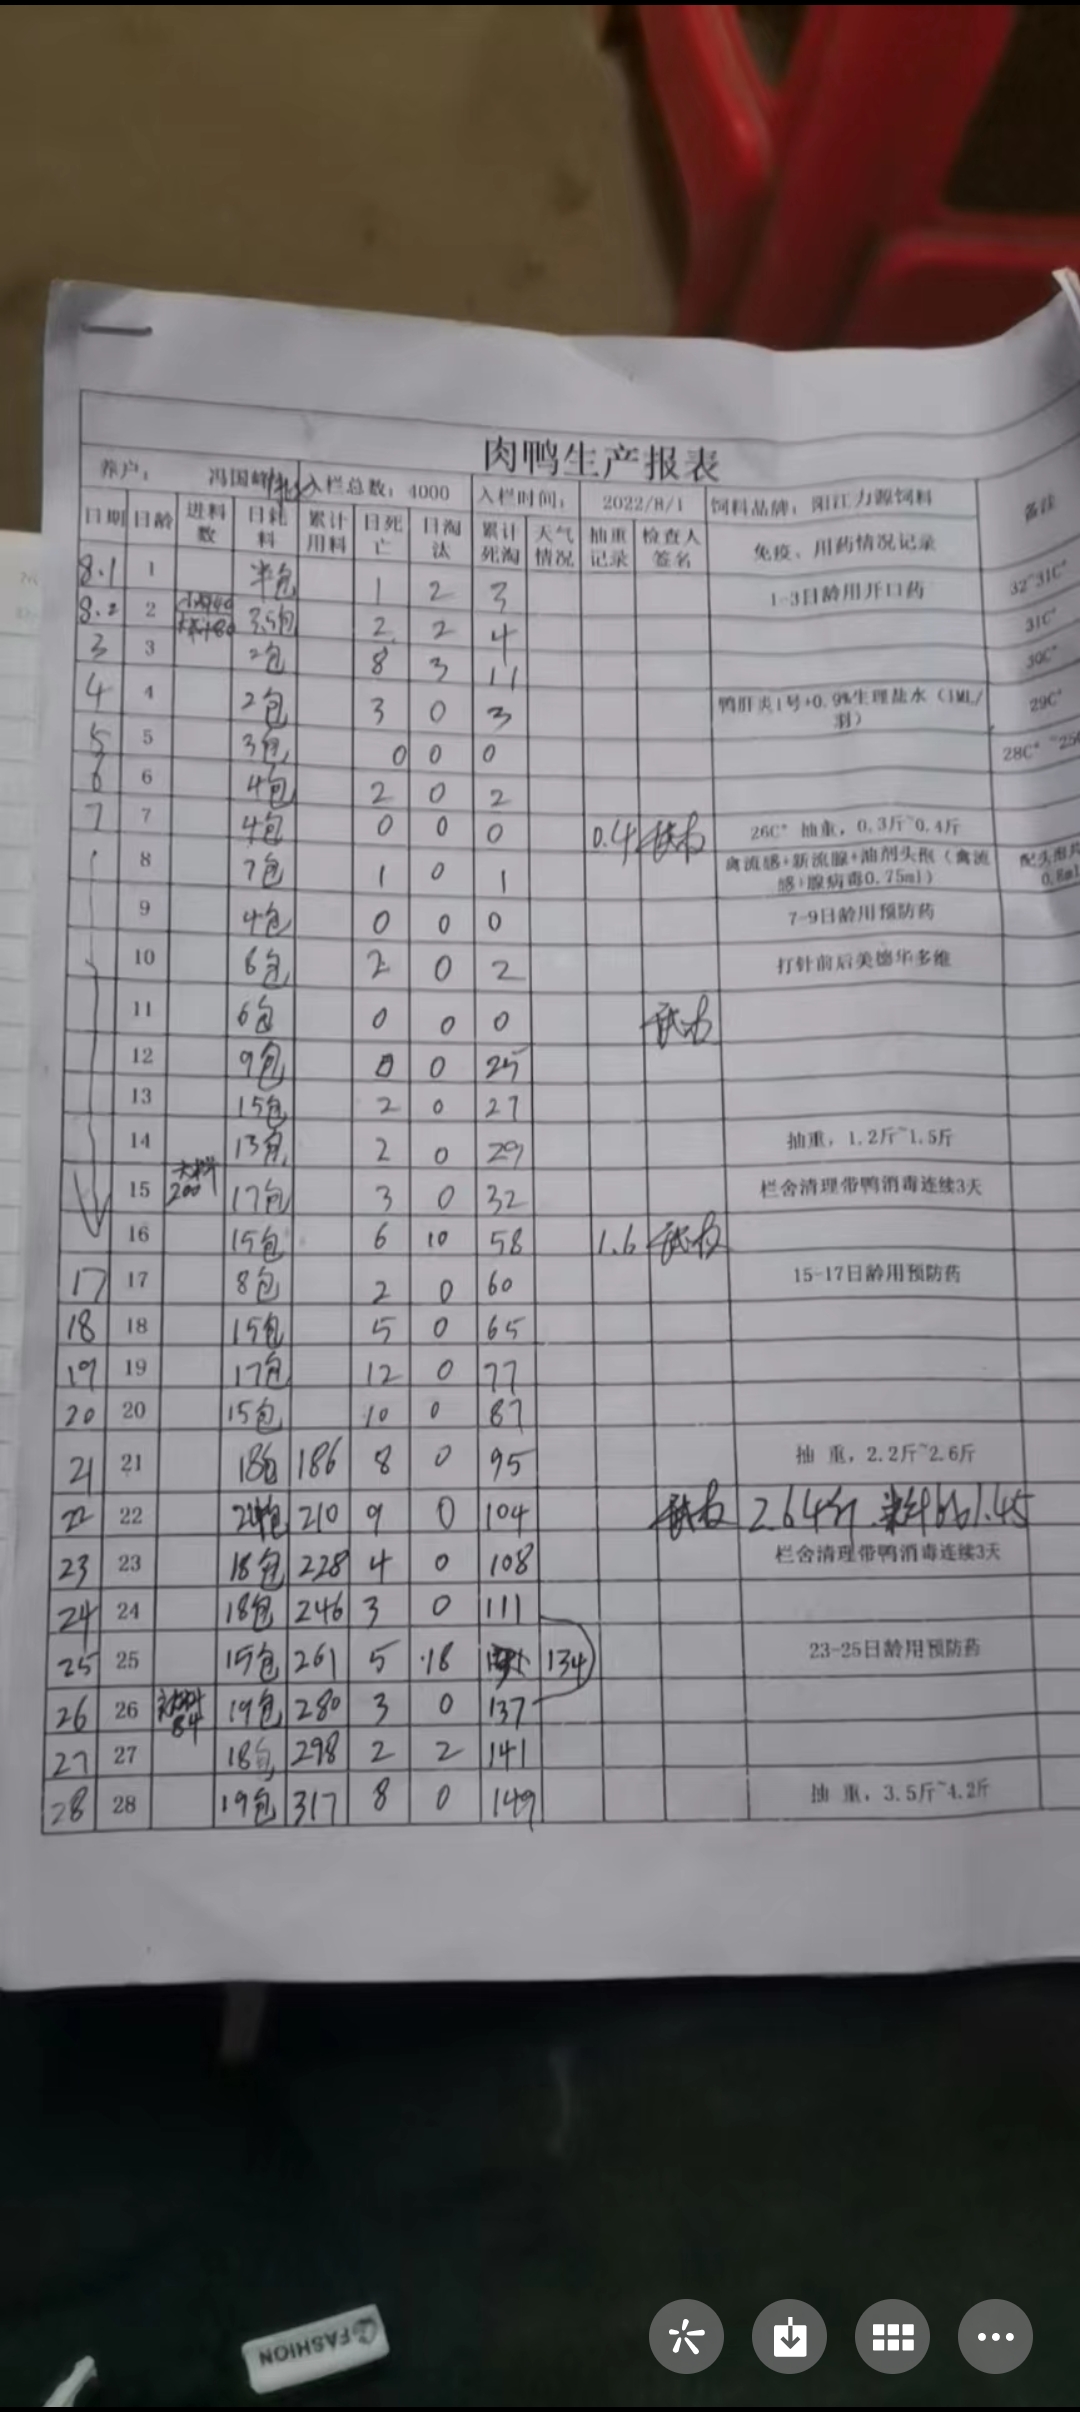 肉鸭生产报表
养户： 冯国峰 入栏总数：4000 入栏时间： 2022/8/1 饲料品牌：阳江力源饲料 备注
日期 日龄 进料数 日耗料 累计用料 日死亡 日淘汰 累计死淘 天气情况 抽重记录 检查人签名 免疫、用药情况记录
8.1 1 半包 1 2 3 1-3日龄用开口药 32~31C°
8.2 2 3.5包 2 2 4 31C°
3 3 2包 8 3 11 30C°
4 4 2包 3 0 3 鸭肝炎1号+0.9%生理盐水（1ML/羽） 29C°
5 5 3包 0 0 0 28C°
6 6 4包 2 0 2
7 7 4包 0 0 0 0.4 26C° 抽重，0.3斤~0.4斤
8 7包 1 0 1 禽流感+新流腺+油剂头孢（禽流感+腺病毒0.75ml）
9 4包 0 0 0 7-9日龄用预防药
10 6包 2 0 2 打针前后美德华多维
11 6包 0 0 0
12 9包 0 0 25
13 15包 2 0 27
14 13包 2 0 29 抽重，1.2斤~1.5斤
15 大料200 17包 3 0 32 栏舍清理带鸭消毒连续3天
16 15包 6 10 58 1.6
17 17 8包 2 0 60 15-17日龄用预防药
18 18 15包 5 0 65
19 19 17包 12 0 77
20 20 15包 10 0 87
21 21 18包 186 8 0 95 抽 重，2.2斤~2.6斤
22 22 24包 210 9 0 104 2.64斤 料肉比1.45
23 23 18包 228 4 0 108 栏舍清理带鸭消毒连续3天
24 24 18包 246 3 0 111
25 25 15包 261 5 18 134 23-25日龄用预防药
26 26 84 19包 280 3 0 137
27 27 18包 298 2 2 141
28 28 19包 317 8 0 149 抽 重，3.5斤~4.2斤
FASHION